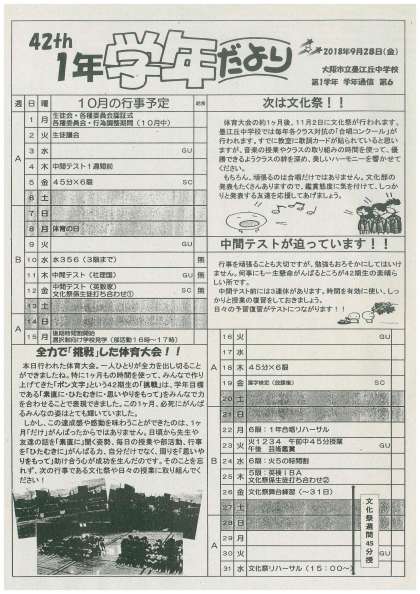 42th
1年 学年だより
2018年9月28日(金)
大阪市立墨江丘中学校
第1学年 学年通信 第6
週 日 曜 10月の行事予定 給食
1 月 生徒会・各種委員会認証式
各種委員会・行為調整期間(10月中)
2 火 生徒議会
A 3 水 GU
4 木 中間テスト1週間前
5 金 45分×6限 SC
6 土
7 日
8 月 体育の日
9 火 GU
B 10 水 水356(3限まで) 無
11 木 中間テスト(社理国) GU 無
12 金 中間テスト(英数音)
文化祭保生徒打ち合わせ① SC 無
13 土
14 日
A 15 月 後期時間割開始
選択制向け学校見学(部活動16時~17時)
次は文化祭!!
体育大会の約1ヶ月後、11月2日に文化祭が行われます。
墨江丘中学校では毎年各クラス対抗の「合唱コンクール」が
行われます。すでに教室に歌詞カードが貼られていると思い
ますが、音楽の授業やクラスの取り組みの時間を使って、優
勝できるようクラスの絆を深め、美しいハーモニーを響かせて
ください。
もちろん、頑張るのは合唱だけではありません。文化部の
発表もたくさんありますので、鑑賞態度に気を付けて、しっか
りと発表する友達を応援してあげましょう。
中間テストが迫っています!!
行事を頑張ることも大切ですが、勉強もおろそかにしてはいけ
ません。何事にも一生懸命がんばるところが42期生の素晴ら
しい所です。
中間テスト前には3連休があります。時間を有効に使い、しっ
かりと授業の復習をしておきましょう。
日々の予習復習がテストにつながります!!
全力で「挑戦」した体育大会!!
本日行われた体育大会。一人ひとりが全力を出し切ること
ができましたね。特に1ヶ月もの時間を使って、みんなで作り
上げてきた「ポン文字」という42期生の「挑戦」は、学年目標
である「素直に・ひたむきに・思いやりをもって」をみんなで力
を合わせることで表現できました。この1ヶ月、必死にがんば
るみんなの姿はとても輝いていました。
しかし、この達成感や感動を味わうことができたのは、1ヶ
月「だけ」がんばったからではありません。日頃から先生や
友達の話を「素直に」聞く姿勢、毎日の授業や部活動、行事
を「ひたむきに」がんばる力、自分だけでなく、周りを「思いや
りをもって」助け合う心が成功を生んだのです。そのことを忘
れず、次の行事である文化祭や日々の授業に取り組んでく
ださい!
16 火 GU
17 水
A 18 木 45分×6限
19 金 漢字検定(放課後) SC
20 土
21 日
22 月 6限:1年合唱リハーサル
23 火 火1234 午前中45分授業
午後 芸術鑑賞 GU
B 24 水 6限:火5の時間割
25 木 5限:英検IBA
文化祭保生徒打ち合わせ②
26 金 文化祭舞台練習(~31日)
27 土
28 日
29 月
A 30 火 GU
31 水 文化祭リハーサル(15:00~)
文化祭週間 45分授